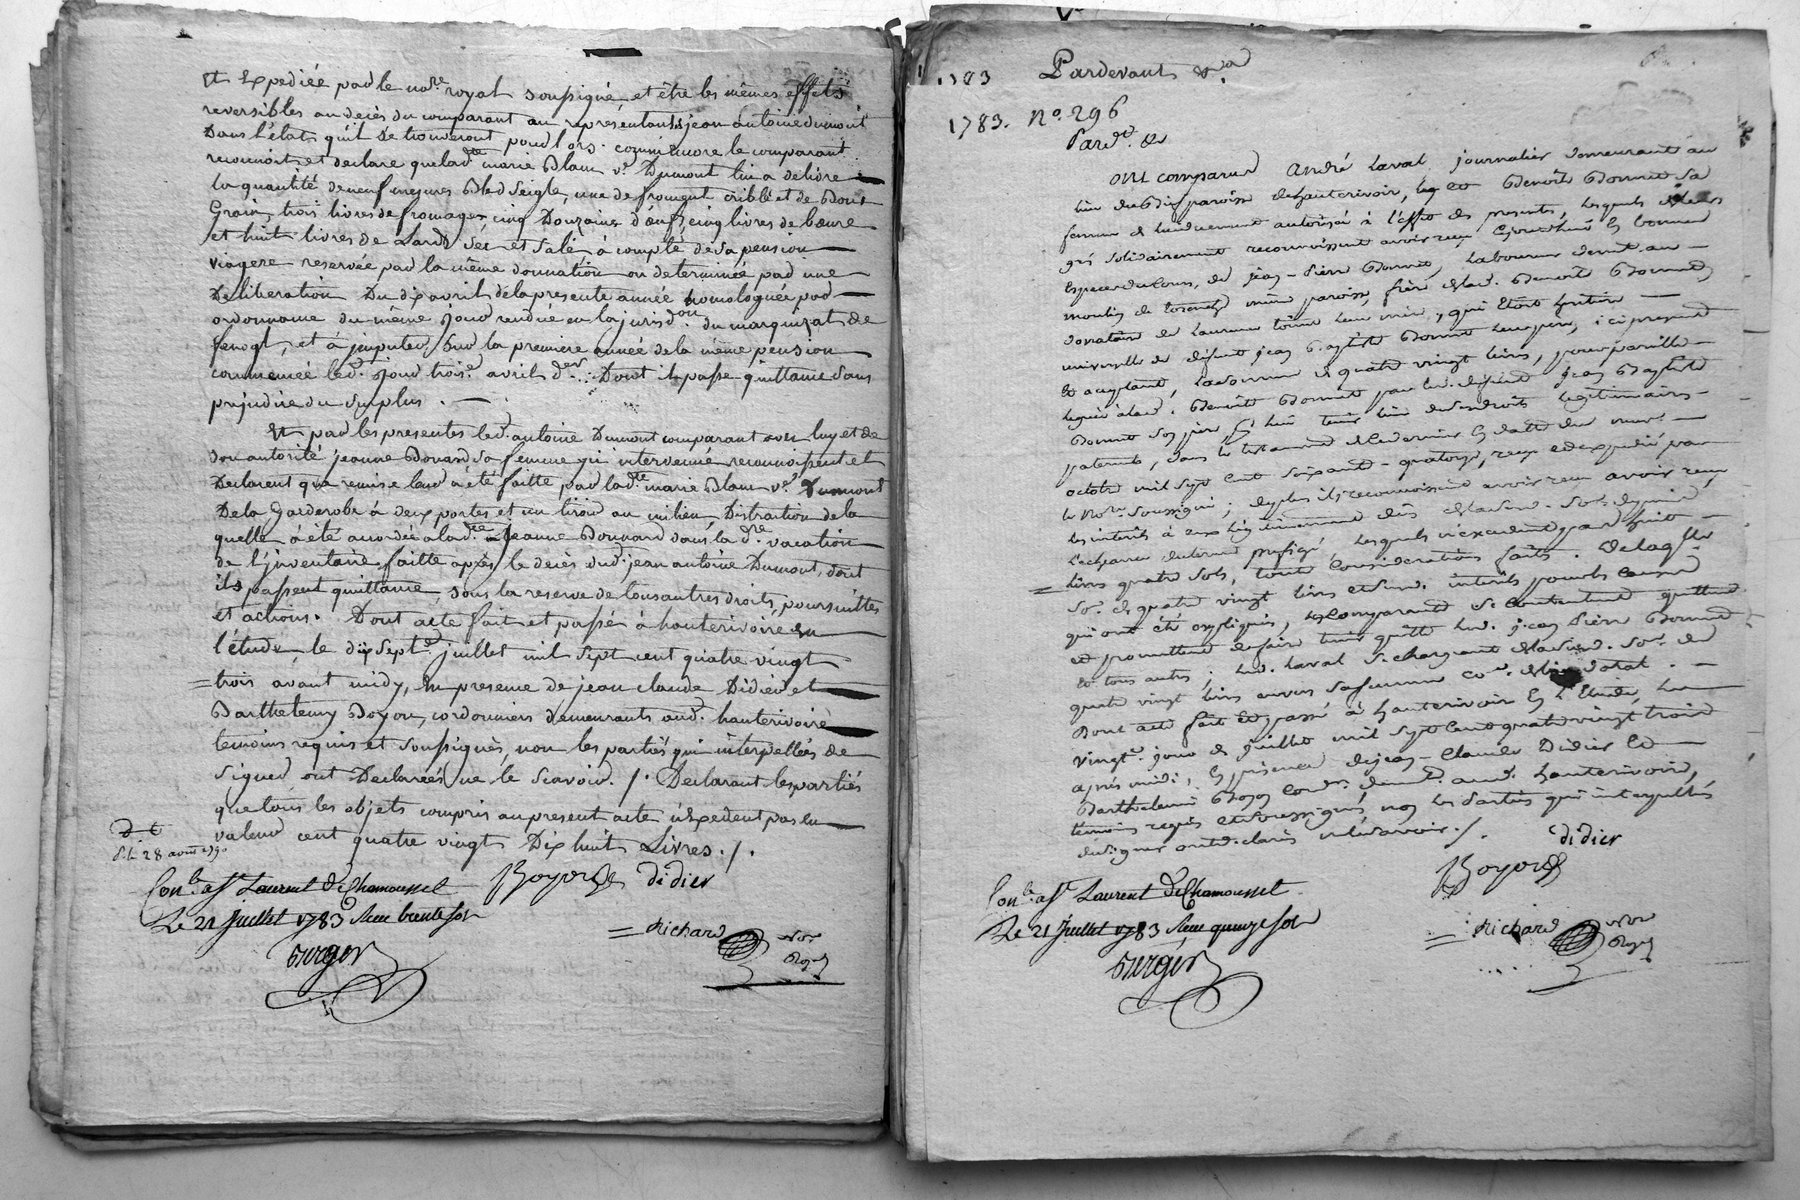 et Expediée par le no.re royal soussigné, et être les mêmes effets
reversibles au décès du comparant au représentants jean antoine dumont
Dans l'état qu'il se trouveront pour lors. comme encore le comparant
reconnoit et declare que lad.te marie Blanc v.e Dumont lui a delivré
la quantité de neuf mesures Bled Seigle, une de froment criblé et de Bon
Grain, trois livres de fromages, cinq Douzaine d'œuf, cinq livres de bœure
et huit livres de Lard Sec et Salé, à compte de sa pension
viagere reservée par la même donnation ou determinée par une
Deliberation Du dix avril de la presente année homologuée par
ordonnance du même jour rendüe en la jurisd.on du marquizat de
fenoyl, et à jmputer sur la premiere année de la même pension
commencée led. jour trois.e avril d.er : Dont il passe quittance sans
prejudice du surplus .
Et par les presentes led. antoine Dumont comparant avec luy et de
son autorité jeanne Bonnard sa femme qui intervenüe reconnoissent et
Declarent que remise leur a été faitte par lad.te marie Blanc v.e Dumont
De la Garderobe à deux portes et un tiroir au milieu, Distraction de la
quelle a été accordée a lad.te jeanne Bonnard dans la d.re vacation
de l'jnventaire faitte après le decès dud. jean antoine Dumont, dont
ils passent quittance, sous la reserve de tous autres droits, poursuittes
et actions. Dont acte fait et passé à hauterivoire en
l'étude, le dix sept.e juillet mil sept cent quatre vingt
trois avant midy, En presence de jean claude Didier et
Barthelemy Boyon, cordonniers demeurants aud. hauterivoire
temoins requis et soussignés, non les partiés qui interpellées de
signer ont Declarées ne le Scavoir. /. Declarant les partiés
que tous les objets compris au present acte n'Excedent pas en
valeur cent quatre vingt Dix huit Livres. /.
28 aoust 1790
Con.lé à S.t Laurent de Chamousset
Le 21 juillet 1783 Reçu trente sols
Boyon
didier
Richard
no.re
Roy.l
1783
Pardevant &.a
1783. N.o 296
Pard.t &
ont comparus André Laval journalier demeurant au
lieu du paroisse de hauterivoir, et Benoite Bonnet sa
femme de lui duement autorisée à l'effet des presentes, lesquels
gré solidairement reconnoissent avoir reçu ce jourd'hui en bonnes
Especes du Cours, de jean-Pierre Bonnet, Laboureur demt. au
moulin de même paroisse, frère de lad. Benoite Bonnet
donataire de Laurence leur mère, qui etoit heritiere
universelle de defunt jean Baptiste Bonnet leur pere, ici present
et acceptant, la somme de quatre vingt livres, pour pareille
leguée à lad. Benoite Bonnet par led. defunt jean Baptiste
Bonnet son pere pour lui tenir lieu de ses droits legitimaires
paternels, dans le testament de ce dernier en datte du neuf
octobre mil sept cent soixante-quatorze, reçu et expedié par
le No.re soussigné; de plus ils reconnoissent avoir reçu
les interets à eux legitimement dûs de lad. So. depuis
l'echeance du terme prefigé, lesquels n'excedent pas huit
livres quatre sols, toute consideration faite. De laq.lle
So. de quatre vingt livres et sesd. interets pour les causes
qui ont été expliqués, les comparants se contentent, quittent
et promettent de faire tenir quitte led. jean Pierre Bonnet
et tous autres; led. Laval se chargeant de lad. So. de
quatre vingt livres envers sa femme co.e dotal.
Dont acte fait et passé à hauterivoir en l'Etude, le
vingt.e jour de juillet mil sept cent quatre vingt trois
après midi, En presence de jean-Claude Didier et
Barthelemi Boyon cordon.rs demt. aud. hauterivoire,
temoins requis et soussignés, non les Parties qui interpellés
de signer ont declarés ne le savoir. /.
didier
Boyon
Con.lé à S.t Laurent de Chamousset
Le 21 juillet 1783 Reçu quinze sols
Richard
no.re
Roy.l